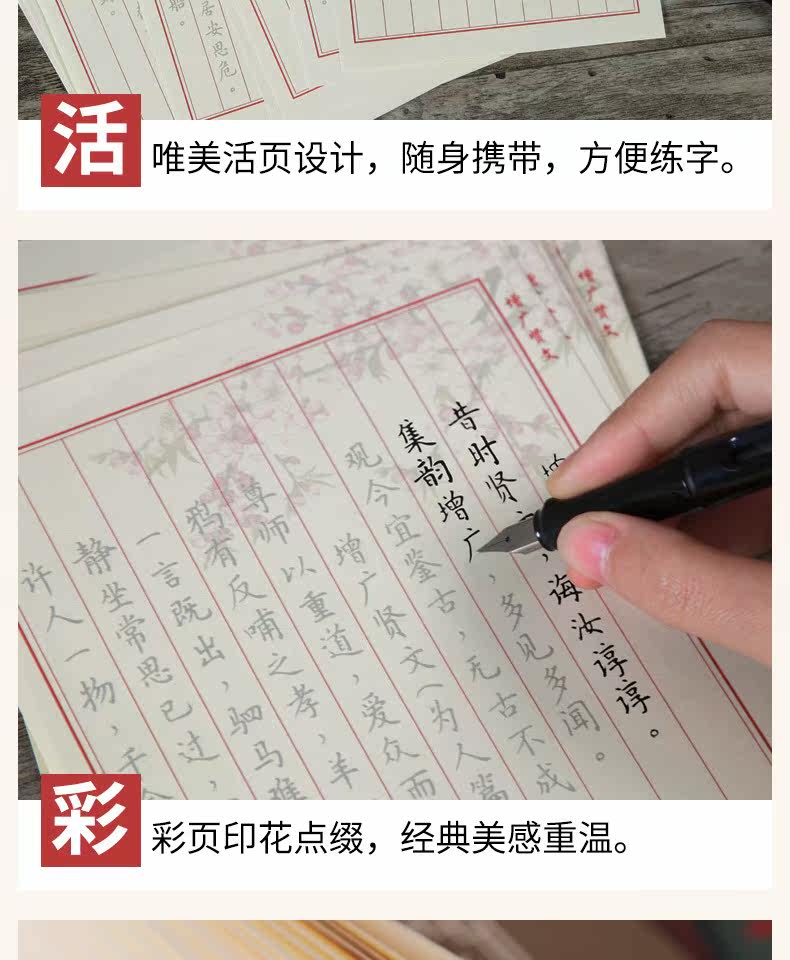 船。
居安思危。
活
唯美活页设计，随身携带，方便练字。
增广贤文
增广贤文
昔时贤文，诲汝谆谆。
集韵增广，多见多闻。
观今宜鉴古，无古不成
增广贤文（为人篇
尊师以重道，爱众而
鸦有反哺之孝，羊
一言既出，驷马难
静坐常思己过，
许人一物，千
彩
彩页印花点缀，经典美感重温。